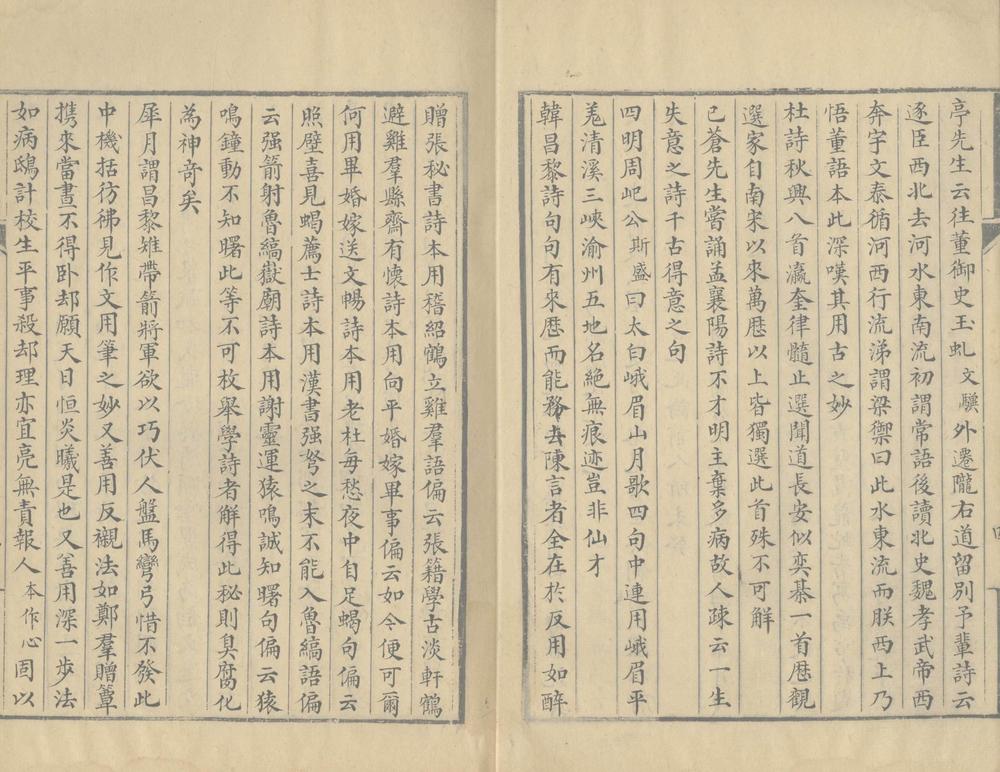 亭先生云往董御史玉虬文驥外遷隴右道留別予輩詩云
逐臣西北去河水東南流初謂常語後讀北史魏孝武帝西
奔宇文泰循河西行流涕謂梁禦曰此水東流而朕西上乃
悟董語本此深嘆其用古之妙
杜詩秋興八首瀛奎律髓止選聞道長安似奕棊一首歷觀
選家自南宋以來萬歷以上皆獨選此首殊不可解
已蒼先生嘗誦孟襄陽詩不才明主棄多病故人疎云一生
失意之詩千古得意之句
四明周屺公斯盛曰太白峨眉山月歌四句中連用峨眉平
羌清溪三峽渝州五地名絶無痕迹豈非仙才
韓昌黎詩句句有來歷而能務去陳言者全在於反用如醉
贈張秘書詩本用嵇紹鶴立雞羣語偏云張籍學古淡軒鶴
避雞羣縣齋有懷詩本用向平婚嫁畢事偏云如今便可爾
何用畢婚嫁送文暢詩本用老杜每愁夜中自足蝎句偏云
照壁喜見蝎薦士詩本用漢書强弩之末不能入魯縞語偏
云强箭射魯縞嶽廟詩本用謝靈運猿鳴誠知曙句偏云猿
鳴鐘動不知曙此等不可枚舉學詩者解得此秘則臭腐化
為神奇矣
犀月謂昌黎雉帶箭將軍欲以巧伏人盤馬彎弓惜不發此
中機括彷彿見作文用筆之妙又善用反襯法如鄭羣贈簟
携來當晝不得卧却願天日恒炎曦是也又善用深一步法
如病鴟計校生平事殺却理亦宜亮無責報人本作心固以